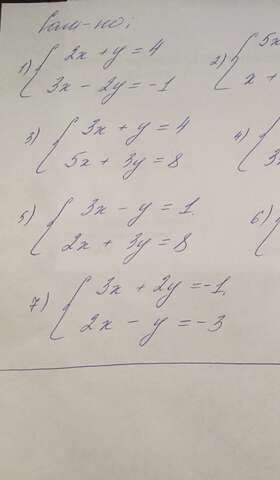 Сам-но:
1) { 2x + y = 4
3x - 2y = -1
2) { 5x
x +
3) { 3x + y = 4
5x + 3y = 8
4) {
3
5) { 3x - y = 1
2x + 3y = 8
6) {
7) { 3x + 2y = -1,
2x - y = -3